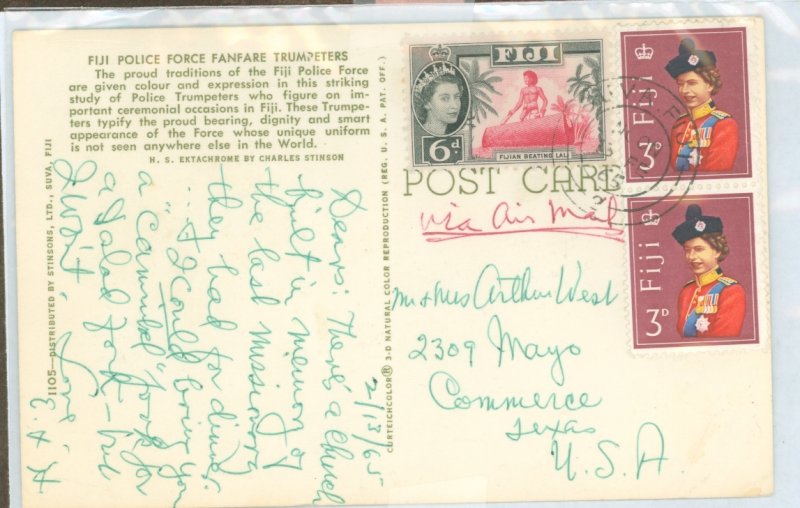 FIJI POLICE FORCE FANFARE TRUMPETERS
The proud traditions of the Fiji Police Force
are given colour and expression in this striking
study of Police Trumpeters who figure on im-
portant ceremonial occasions in Fiji. These Trumpe-
ters typify the proud bearing, dignity and smart
appearance of the Force whose unique uniform
is not seen anywhere else in the World.
H. S. EKTACHROME BY CHARLES STINSON
1105—DISTRIBUTED BY STINSONS, LTD., SUVA, FIJI
2/13/65
Dears: There's a church
built in memory of
the last missionary
they had for dinner.
... I could bring you
a "Cannibal" fork for
a salad fork - but
I won't. Love,
E & H
CURTEICHCOLOR® 3-D NATURAL COLOR REPRODUCTION (REG. U. S. A. PAT. OFF.)
FIJI
6d
FIJIAN BEATING LALI
Fiji
3D
Fiji
3D
POST CARD
via Air Mail
Mr & Mrs Arthur West
2309 Mayo
Commerce
Texas
U.S.A.